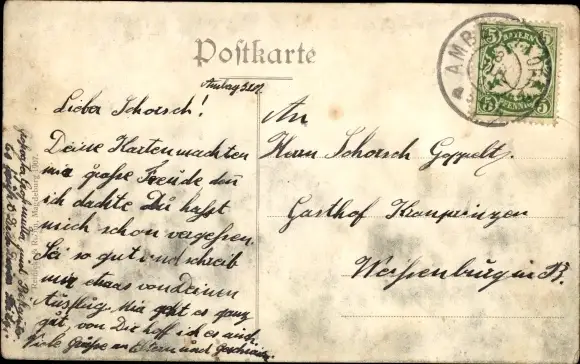 Postkarte
BAYERN
5 5
PFENNIG
AMB
Lieber Schorsch!
Deine Karten machten
mir große Freude denn
ich dachte Du hast
mich schon vergessen.
Sei so gut und schreib
mir etwas von Deinem
Ausflug. Mir geht es ganz
gut, von Dir hoff ich es auch.
Viele Grüße an Eltern und
An
Herrn Schorsch Goppelt.
Gasthof Kronprinzen
Weissenburg in B.
Magdeburg